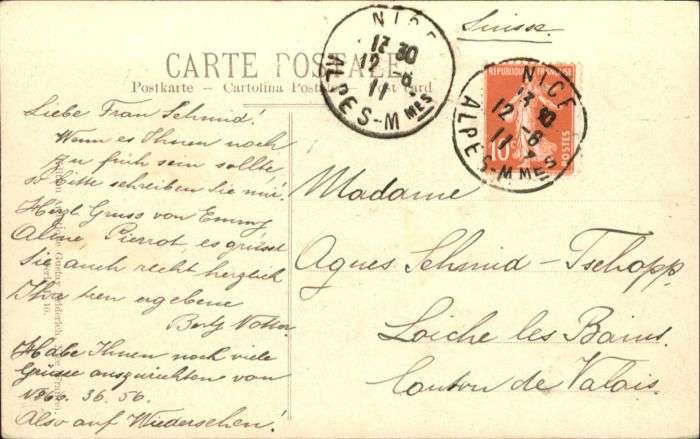 Suisse.
CARTE POSTALE
Postkarte — Cartolina Postale — Post Card
NICE
17 30
12 -6
11
ALPES-Mmes
NICE
17 30
12 -6
11
ALPES-Mmes
REPUBLIQUE FRANÇAISE
10c
POSTES
Liebe Frau Schmid!
Wenn es Ihnen noch
zu früh sein sollte
so bitte schreiben Sie mir!
Herzl. Gruss von Emmy
Aline Pierrot, es grüsst
Sie auch recht herzlich
Ihre treu ergebene
Berty
Habe Ihnen noch viele
Grüsse auszurichten von
36. 56.
Also auf Wiedersehen!
Madame
Agnes Schmid-Tschopp
Loiche les Bains.
Canton de Valais.